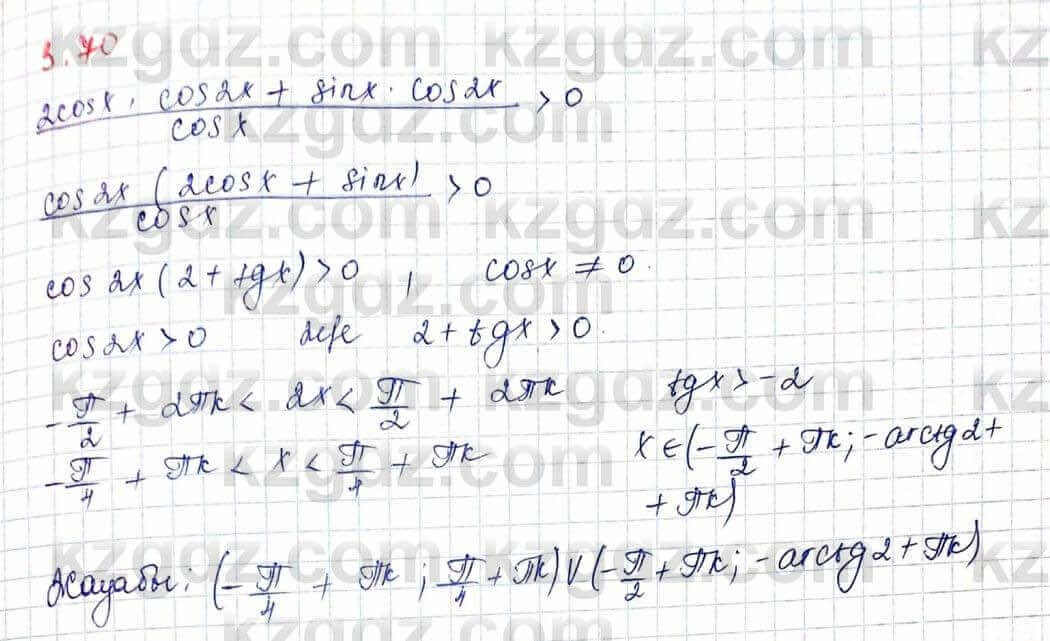 3.70
2cosx · cos2x + sinx · cos2x / cosx > 0
cos2x (2cosx + sinx) / cosx > 0
cos 2x (2 + tgx) > 0 , cosx ≠ 0.
cos2x > 0 2 + tgx > 0.
-π/2 + 2πk < 2x < π/2 + 2πk tgx > -2
-π/4 + πk < x < π/4 + πk x ∈ (-π/2 + πk; -arctg2 +
+ πk)
Жауабы: (-π/4 + πk ; π/4 + πk) V (-π/2 + πk; -arctg2 + πk)
kzgdz.com